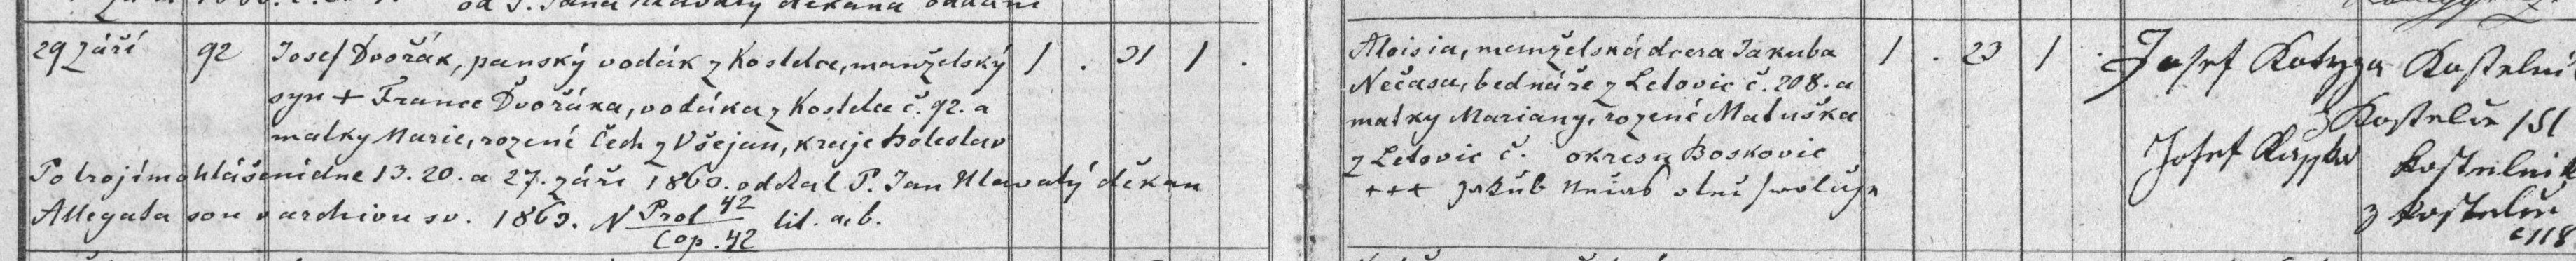 od P. Jana Hlavatý děkana oddáni
29 září 92 Josef Dvořák, panský vodák z Kostelce, manželský 1 . 31 1 .
syn + France Dvořáka, vodáka z Kostelce č. 92. a
matky Marie, rození Čech z Všejan, kraje Boleslav
Po trojím ohlášení dne 13. 20. a 27. září 1863. oddal P. Jan Hlavatý děkan
Allegata sou v archivu sv. 1863. N Prot 42 / Cop. 42 lit. a, b.
Aloisia, manželská dcera Jakuba 1 . 23 1 .
Nečasa, bednáře z Letovic č. 208. a
matky Mariany, rozené Matuška
z Letovic č. okresu Boskovic
+++ Jakub Nečas otec svoluje
Josef Kotyza Kostelní
z Kostelce 151
Josef Kostelník
z Kostelce
č 118